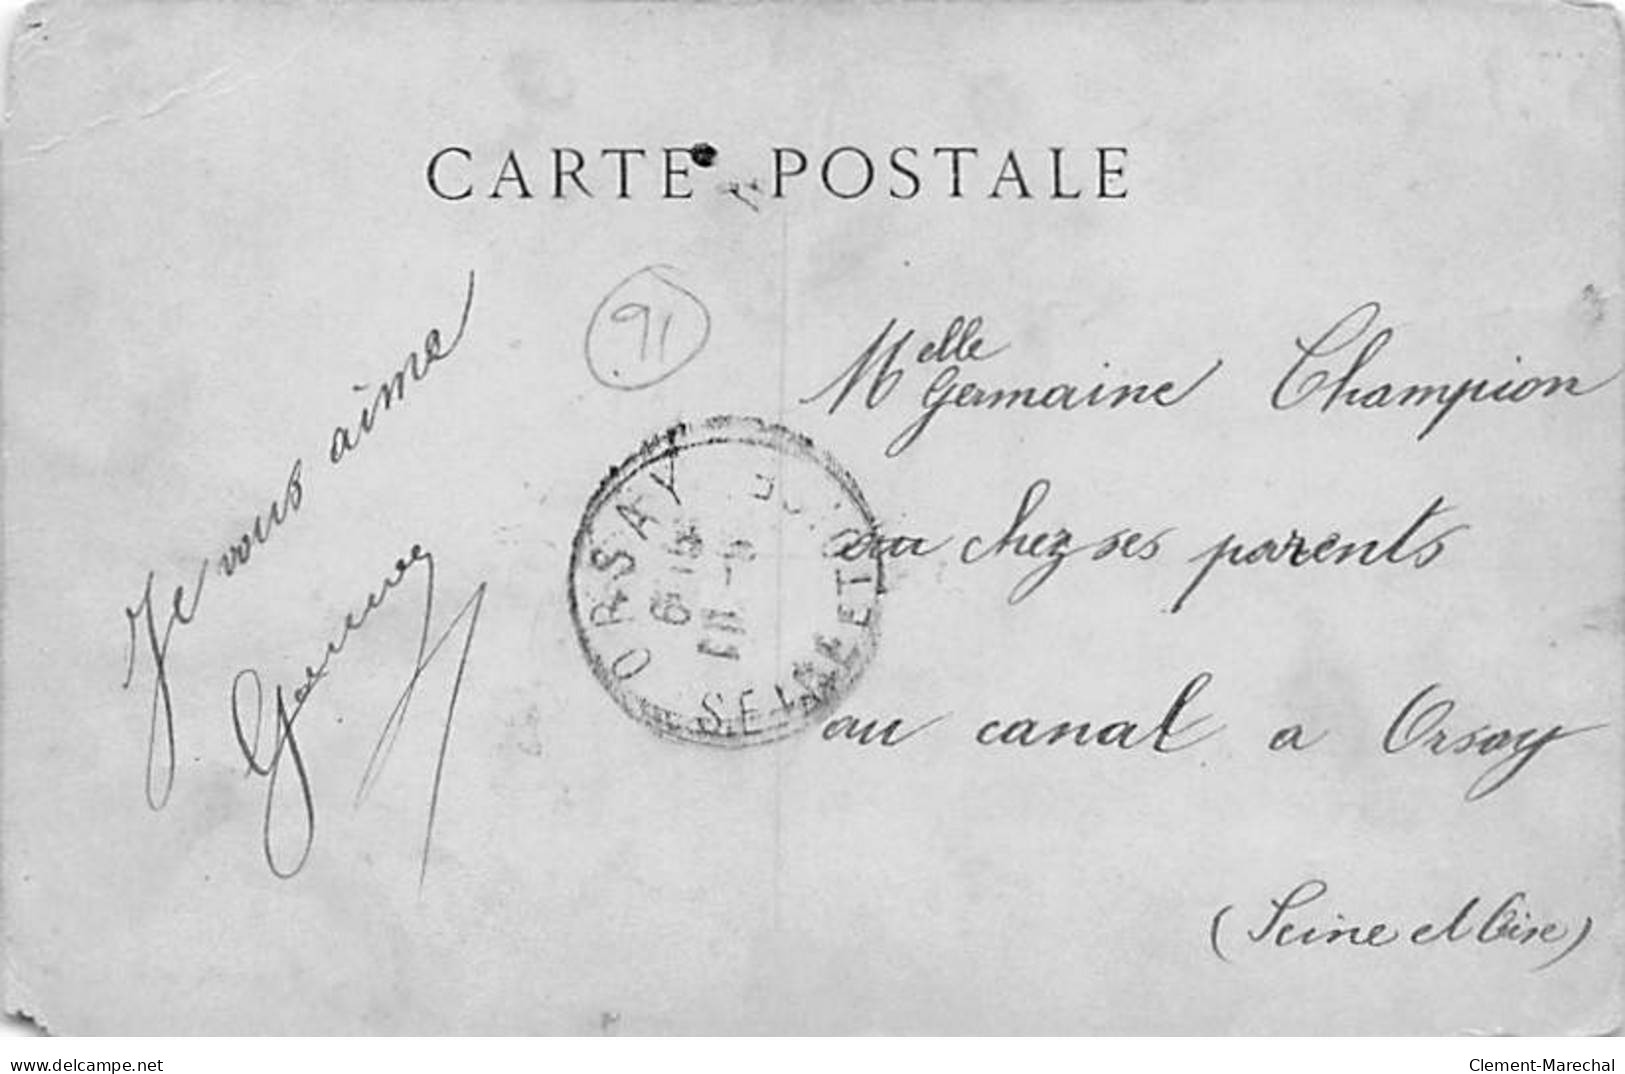 CARTE POSTALE
91
Je vous aime
Melle Germaine Champion
chez ses parents
au canal a Orsay
(Seine et Oise)
ORSAY
SEINE ET
delcampe.net
Clement-Marechal